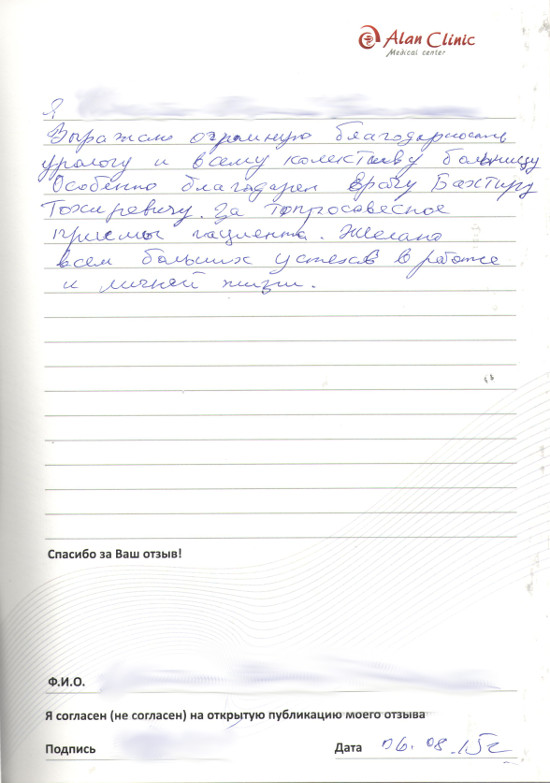 Alan Clinic
Medical center
Я
Выражаю огромную благодарность
урологу и всему колективу больницы
Особенно благодарен врачу Бахтиру
Тохировичу. За топросовесное
приемы пациента. Желаю
всем больших успехов в работе
и личней жизни.
Спасибо за Ваш отзыв!
Ф.И.О.
Я согласен (не согласен) на открытую публикацию моего отзыва
Подпись
Дата 06.08.15г